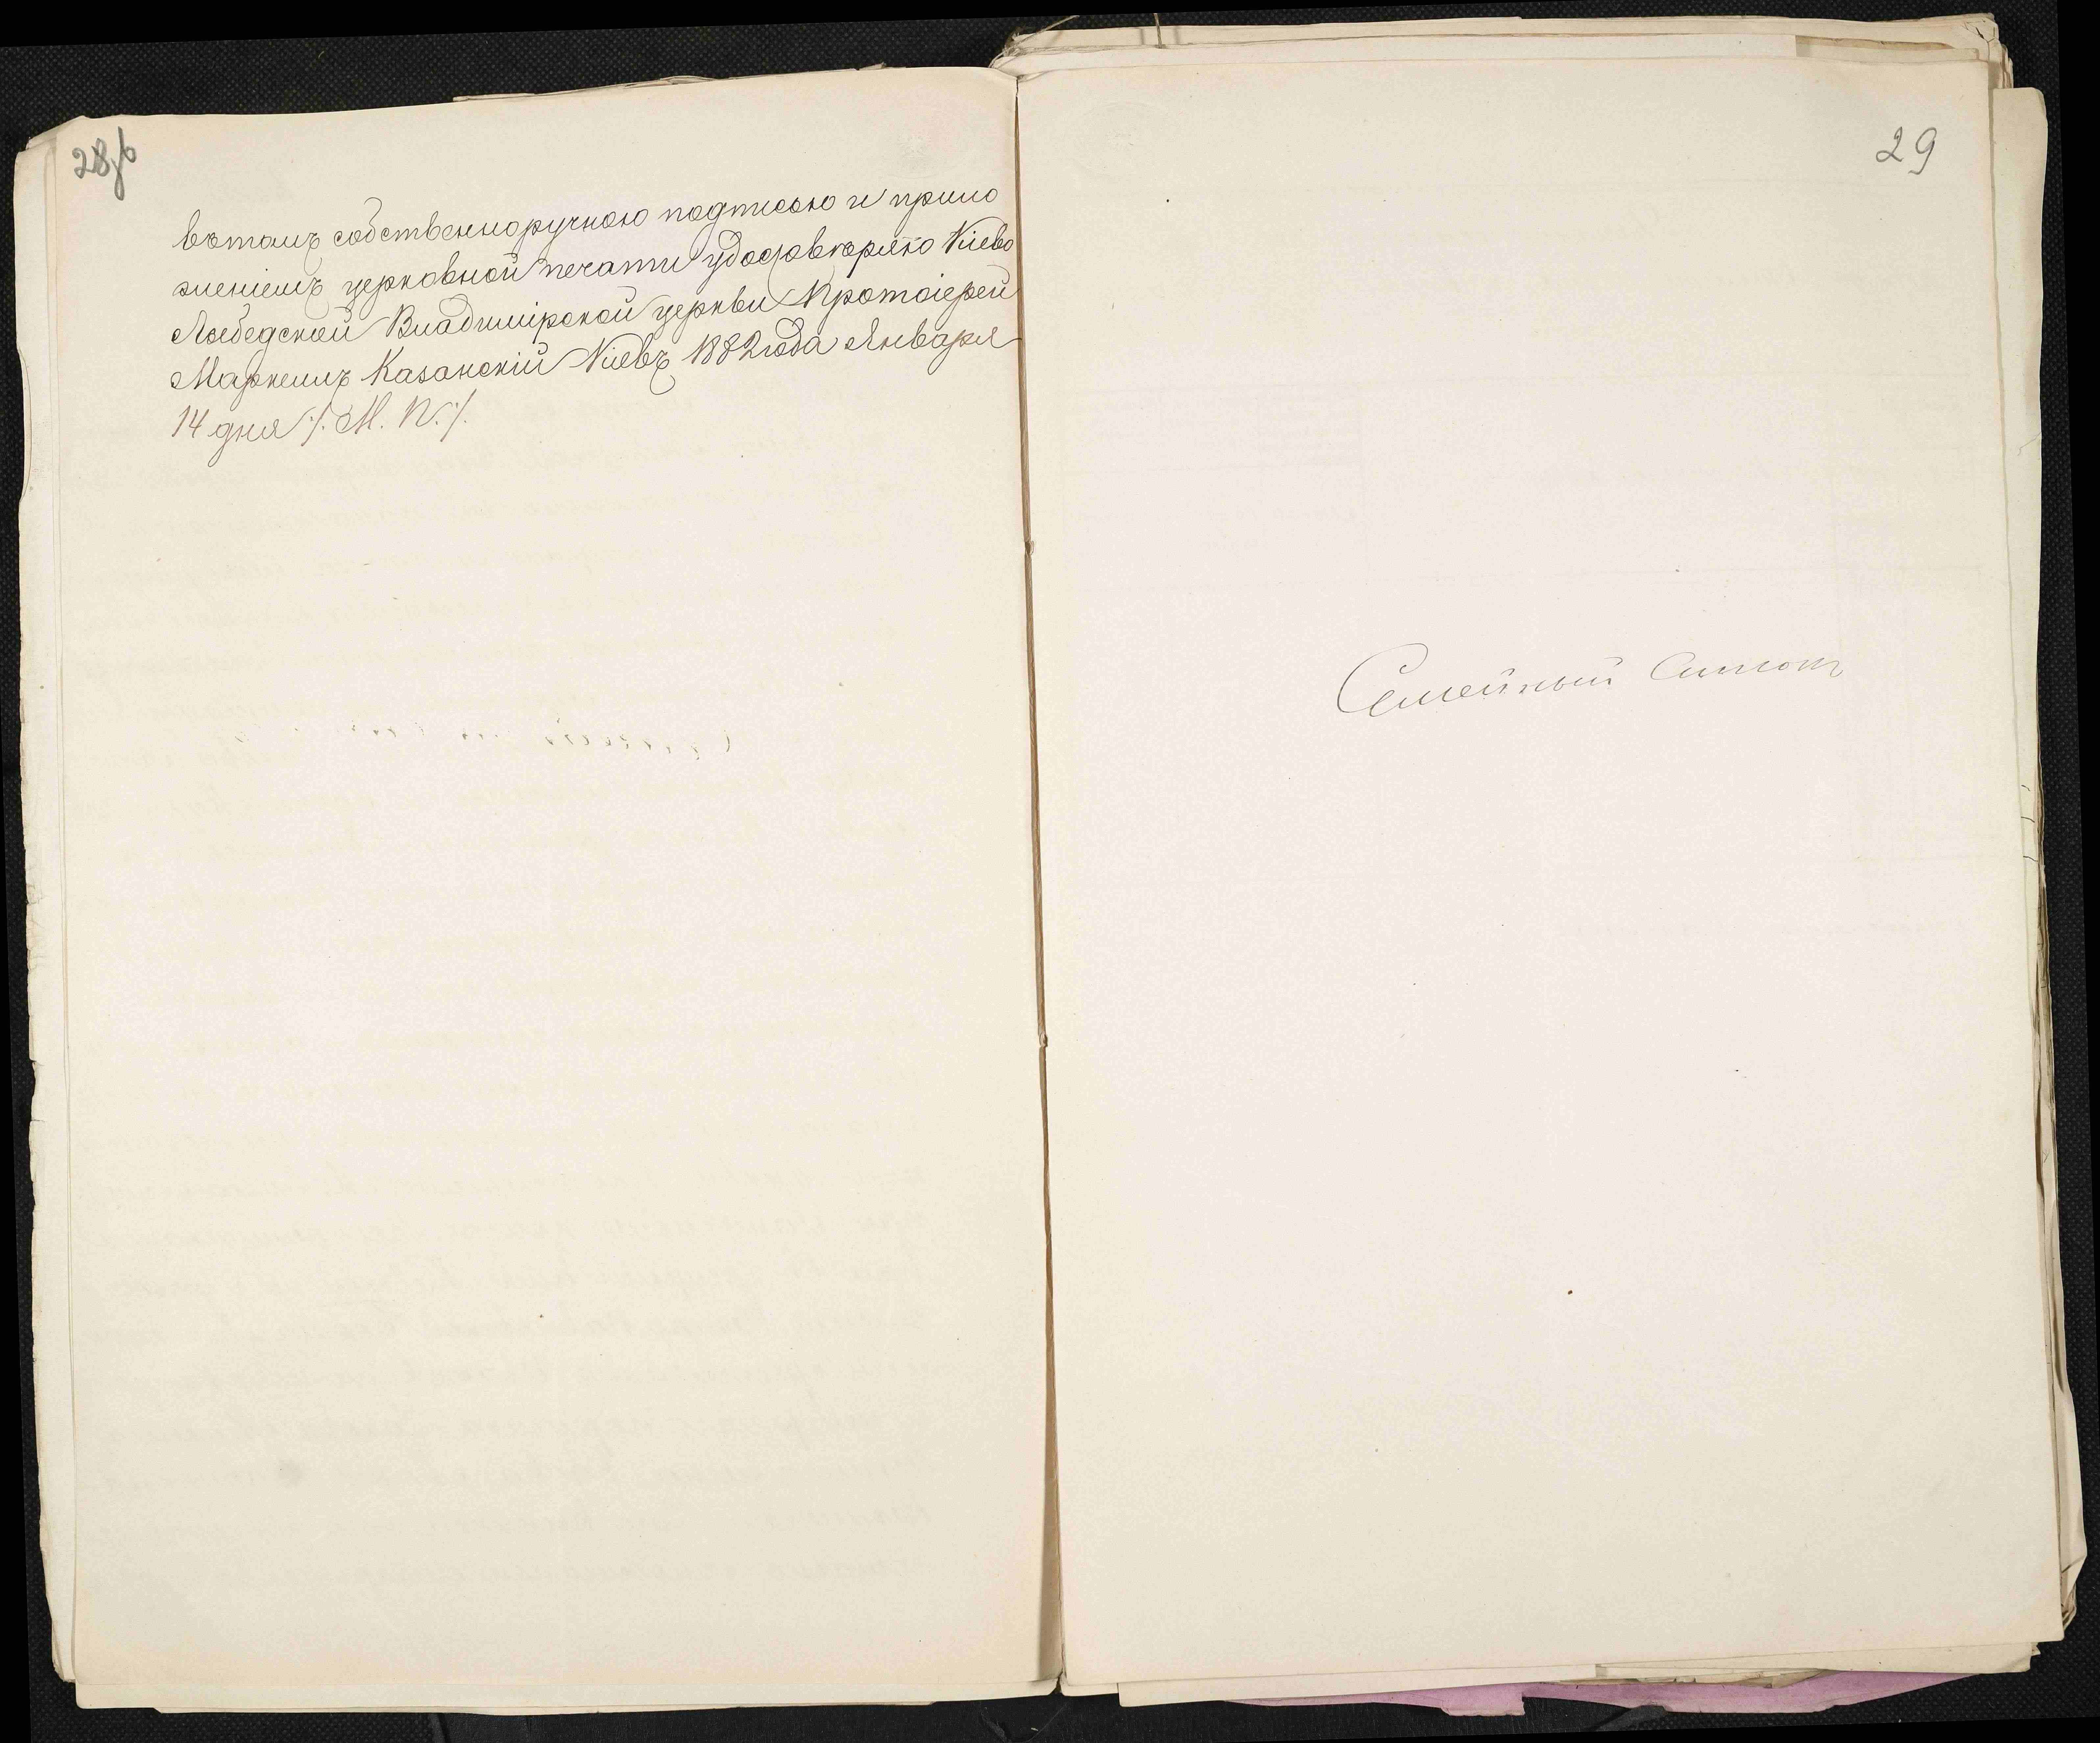 28об
вътомъ собственноручною подписью и прило
женіемъ церковной печати удостовѣряю Кіево
Лыбедской Владимірской церкви Протоіерей
Маркеллъ Казанскій Кіевъ 1882 года Января
14 дня /. М. П. /.
29
Семейный Списокъ